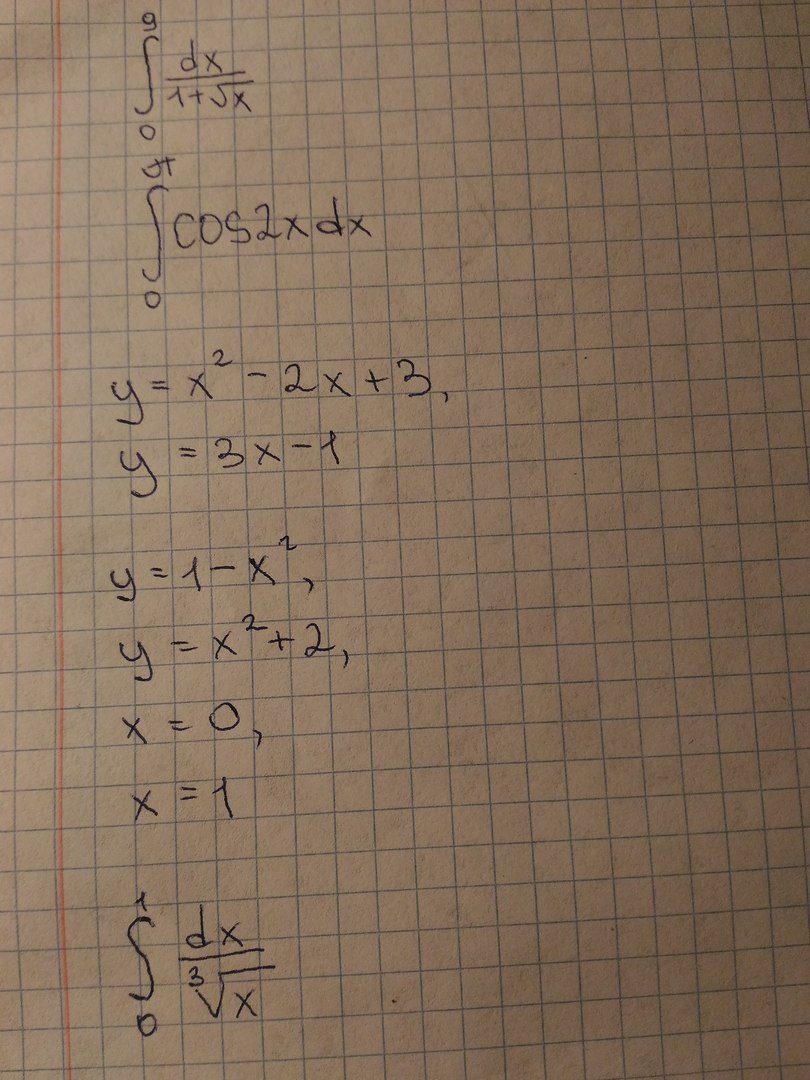 ∫₀⁹ dx/(1+√x)
∫₀^π cos2xdx
y = x² - 2x + 3,
y = 3x - 1
y = 1 - x²,
y = x² + 2,
x = 0,
x = 1
∫₀¹ dx/∛x